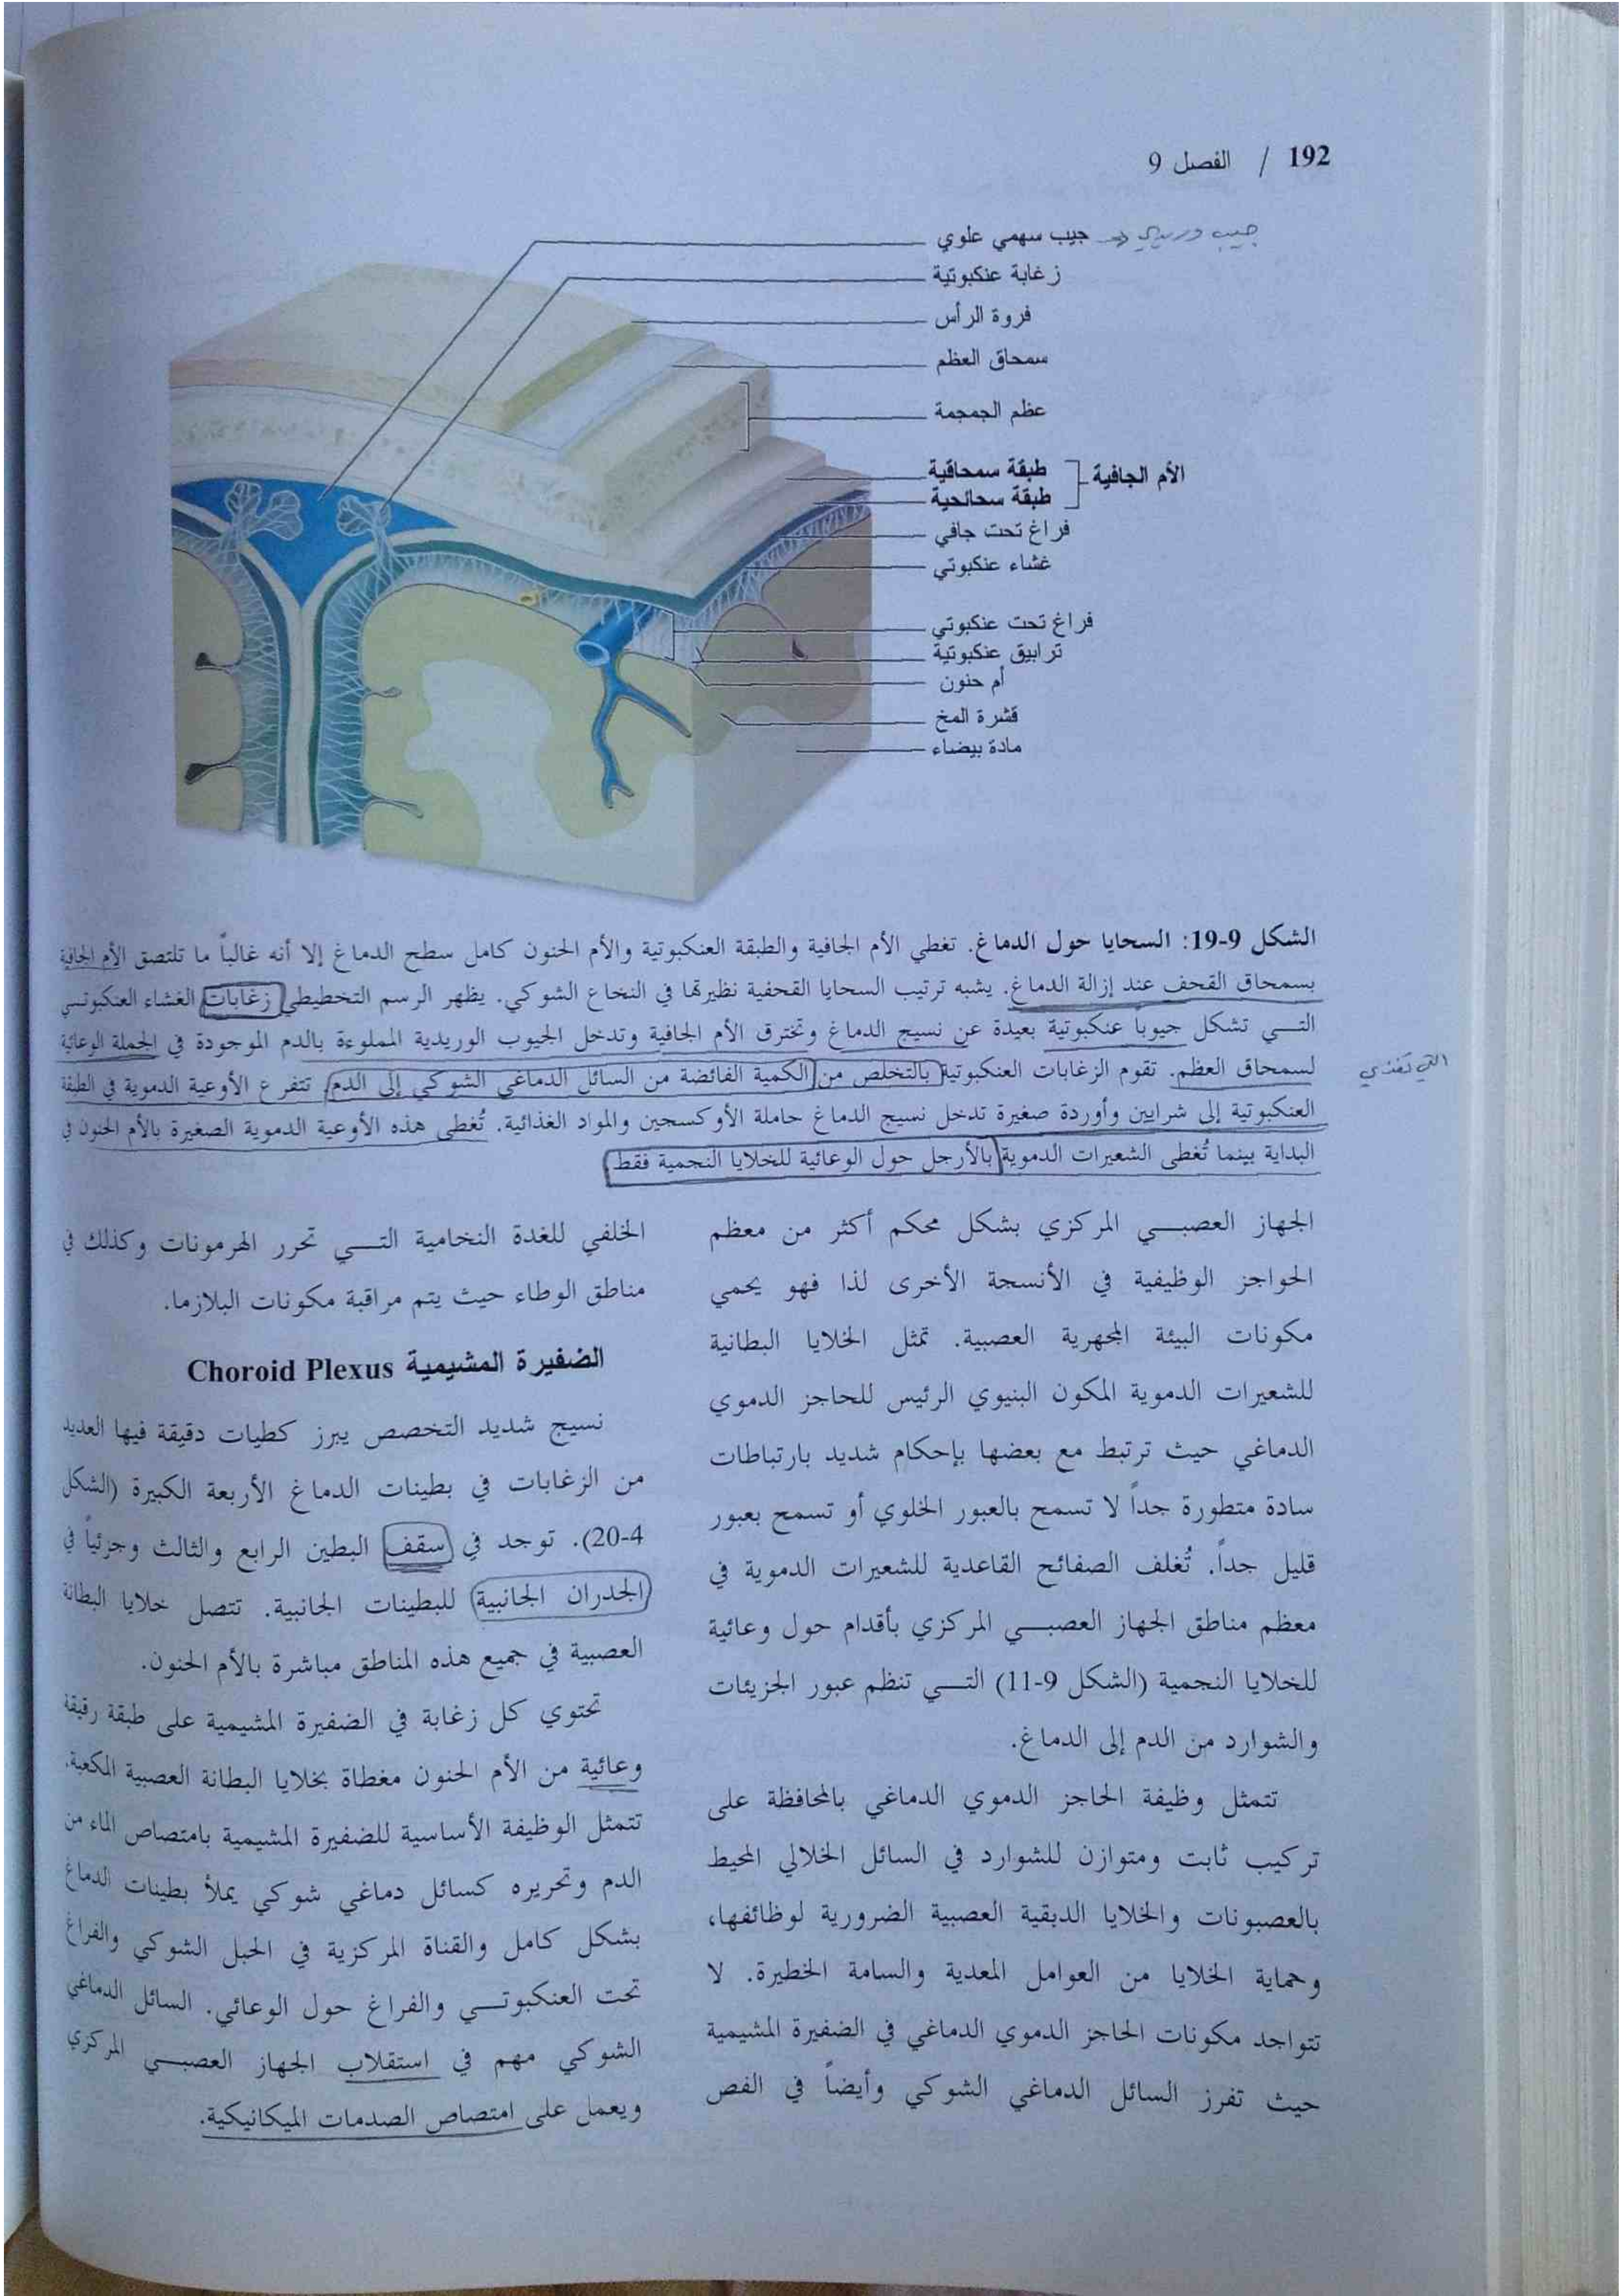 192 / الفصل 9
جيب سهمي علوي
جيب وريدي
زغابة عنكبوتية
فروة الرأس
سمحاق العظم
عظم الجمجمة
طبقة سمحاقية
طبقة سحائحية
الأم الجافية
فراغ تحت جافي
غشاء عنكبوتي
فراغ تحت عنكبوتي
ترابيق عنكبوتية
أم حنون
قشرة المخ
مادة بيضاء
الشكل 9-19: السحايا حول الدماغ. تغطي الأم الجافية والطبقة العنكبوتية والأم الحنون كامل سطح الدماغ إلا أنه غالباً ما تلتصق الأم الجافية
بسمحاق القحف عند إزالة الدماغ. يشبه ترتيب السحايا القحفية نظيرتها في النخاع الشوكي. يظهر الرسم التخطيطي زغابات الغشاء العنكبوتي
التي تشكل جيوباً عنكبوتية بعيدة عن نسيج الدماغ وتخترق الأم الجافية وتدخل الجيوب الوريدية المملوءة بالدم الموجودة في الجملة الوعائية
لسمحاق العظم. تقوم الزغابات العنكبوتية بالتخلص من الكمية الفائضة من السائل الدماغي الشوكي إلى الدم، تتفرع الأوعية الدموية في الطبقة
التي تغذي
العنكبوتية إلى شرايين وأوردة صغيرة تدخل نسيج الدماغ حاملة الأوكسجين والمواد الغذائية. تُغطى هذه الأوعية الدموية الصغيرة بالأم الحنون في
البداية بينما تُغطى الشعيرات الدموية بالأرجل حول الوعائية للخلايا النجمية فقط
الجهاز العصبي المركزي بشكل محكم أكثر من معظم
الحواجز الوظيفية في الأنسجة الأخرى لذا فهو يحمي
مكونات البيئة المجهرية العصبية. تمثل الخلايا البطانية
للشعيرات الدموية المكون البنيوي الرئيس للحاجز الدموي
الدماغي حيث ترتبط مع بعضها بإحكام شديد بارتباطات
سادة متطورة جداً لا تسمح بالعبور الخلوي أو تسمح بعبور
قليل جداً. تُغلف الصفائح القاعدية للشعيرات الدموية في
معظم مناطق الجهاز العصبي المركزي بأقدام حول وعائية
للخلايا النجمية (الشكل 9-11) التي تنظم عبور الجزيئات
والشوارد من الدم إلى الدماغ.
تتمثل وظيفة الحاجز الدموي الدماغي بالمحافظة على
تركيب ثابت ومتوازن للشوارد في السائل الخلالي المحيط
بالعصبونات والخلايا الدبقية العصبية الضرورية لوظائفها،
وحماية الخلايا من العوامل المعدية والسامة الخطيرة. لا
تتواجد مكونات الحاجز الدموي الدماغي في الضفيرة المشيمية
حيث تفرز السائل الدماغي الشوكي وأيضاً في الفص
الخلفي للغدة النخامية التي تحرر الهرمونات وكذلك في
مناطق الوطاء حيث يتم مراقبة مكونات البلازما.
الضفيرة المشيمية Choroid Plexus
نسيج شديد التخصص يبرز كطيات دقيقة فيها العديد
من الزغابات في بطينات الدماغ الأربعة الكبيرة (الشكل
20-4). توجد في سقف البطين الرابع والثالث وجزئياً في
الجدران الجانبية للبطينات الجانبية. تتصل خلايا البطانة
العصبية في جميع هذه المناطق مباشرة بالأم الحنون.
تحتوي كل زغابة في الضفيرة المشيمية على طبقة رقيقة
وعائية من الأم الحنون مغطاة بخلايا البطانة العصبية المكعبة.
تتمثل الوظيفة الأساسية للضفيرة المشيمية بامتصاص الماء من
الدم وتحريره كسائل دماغي شوكي يملأ بطينات الدماغ
بشكل كامل والقناة المركزية في الحبل الشوكي والفراغ
تحت العنكبوتي والفراغ حول الوعائي. السائل الدماغي
الشوكي مهم في استقلاب الجهاز العصبي المركزي
ويعمل على امتصاص الصدمات الميكانيكية.